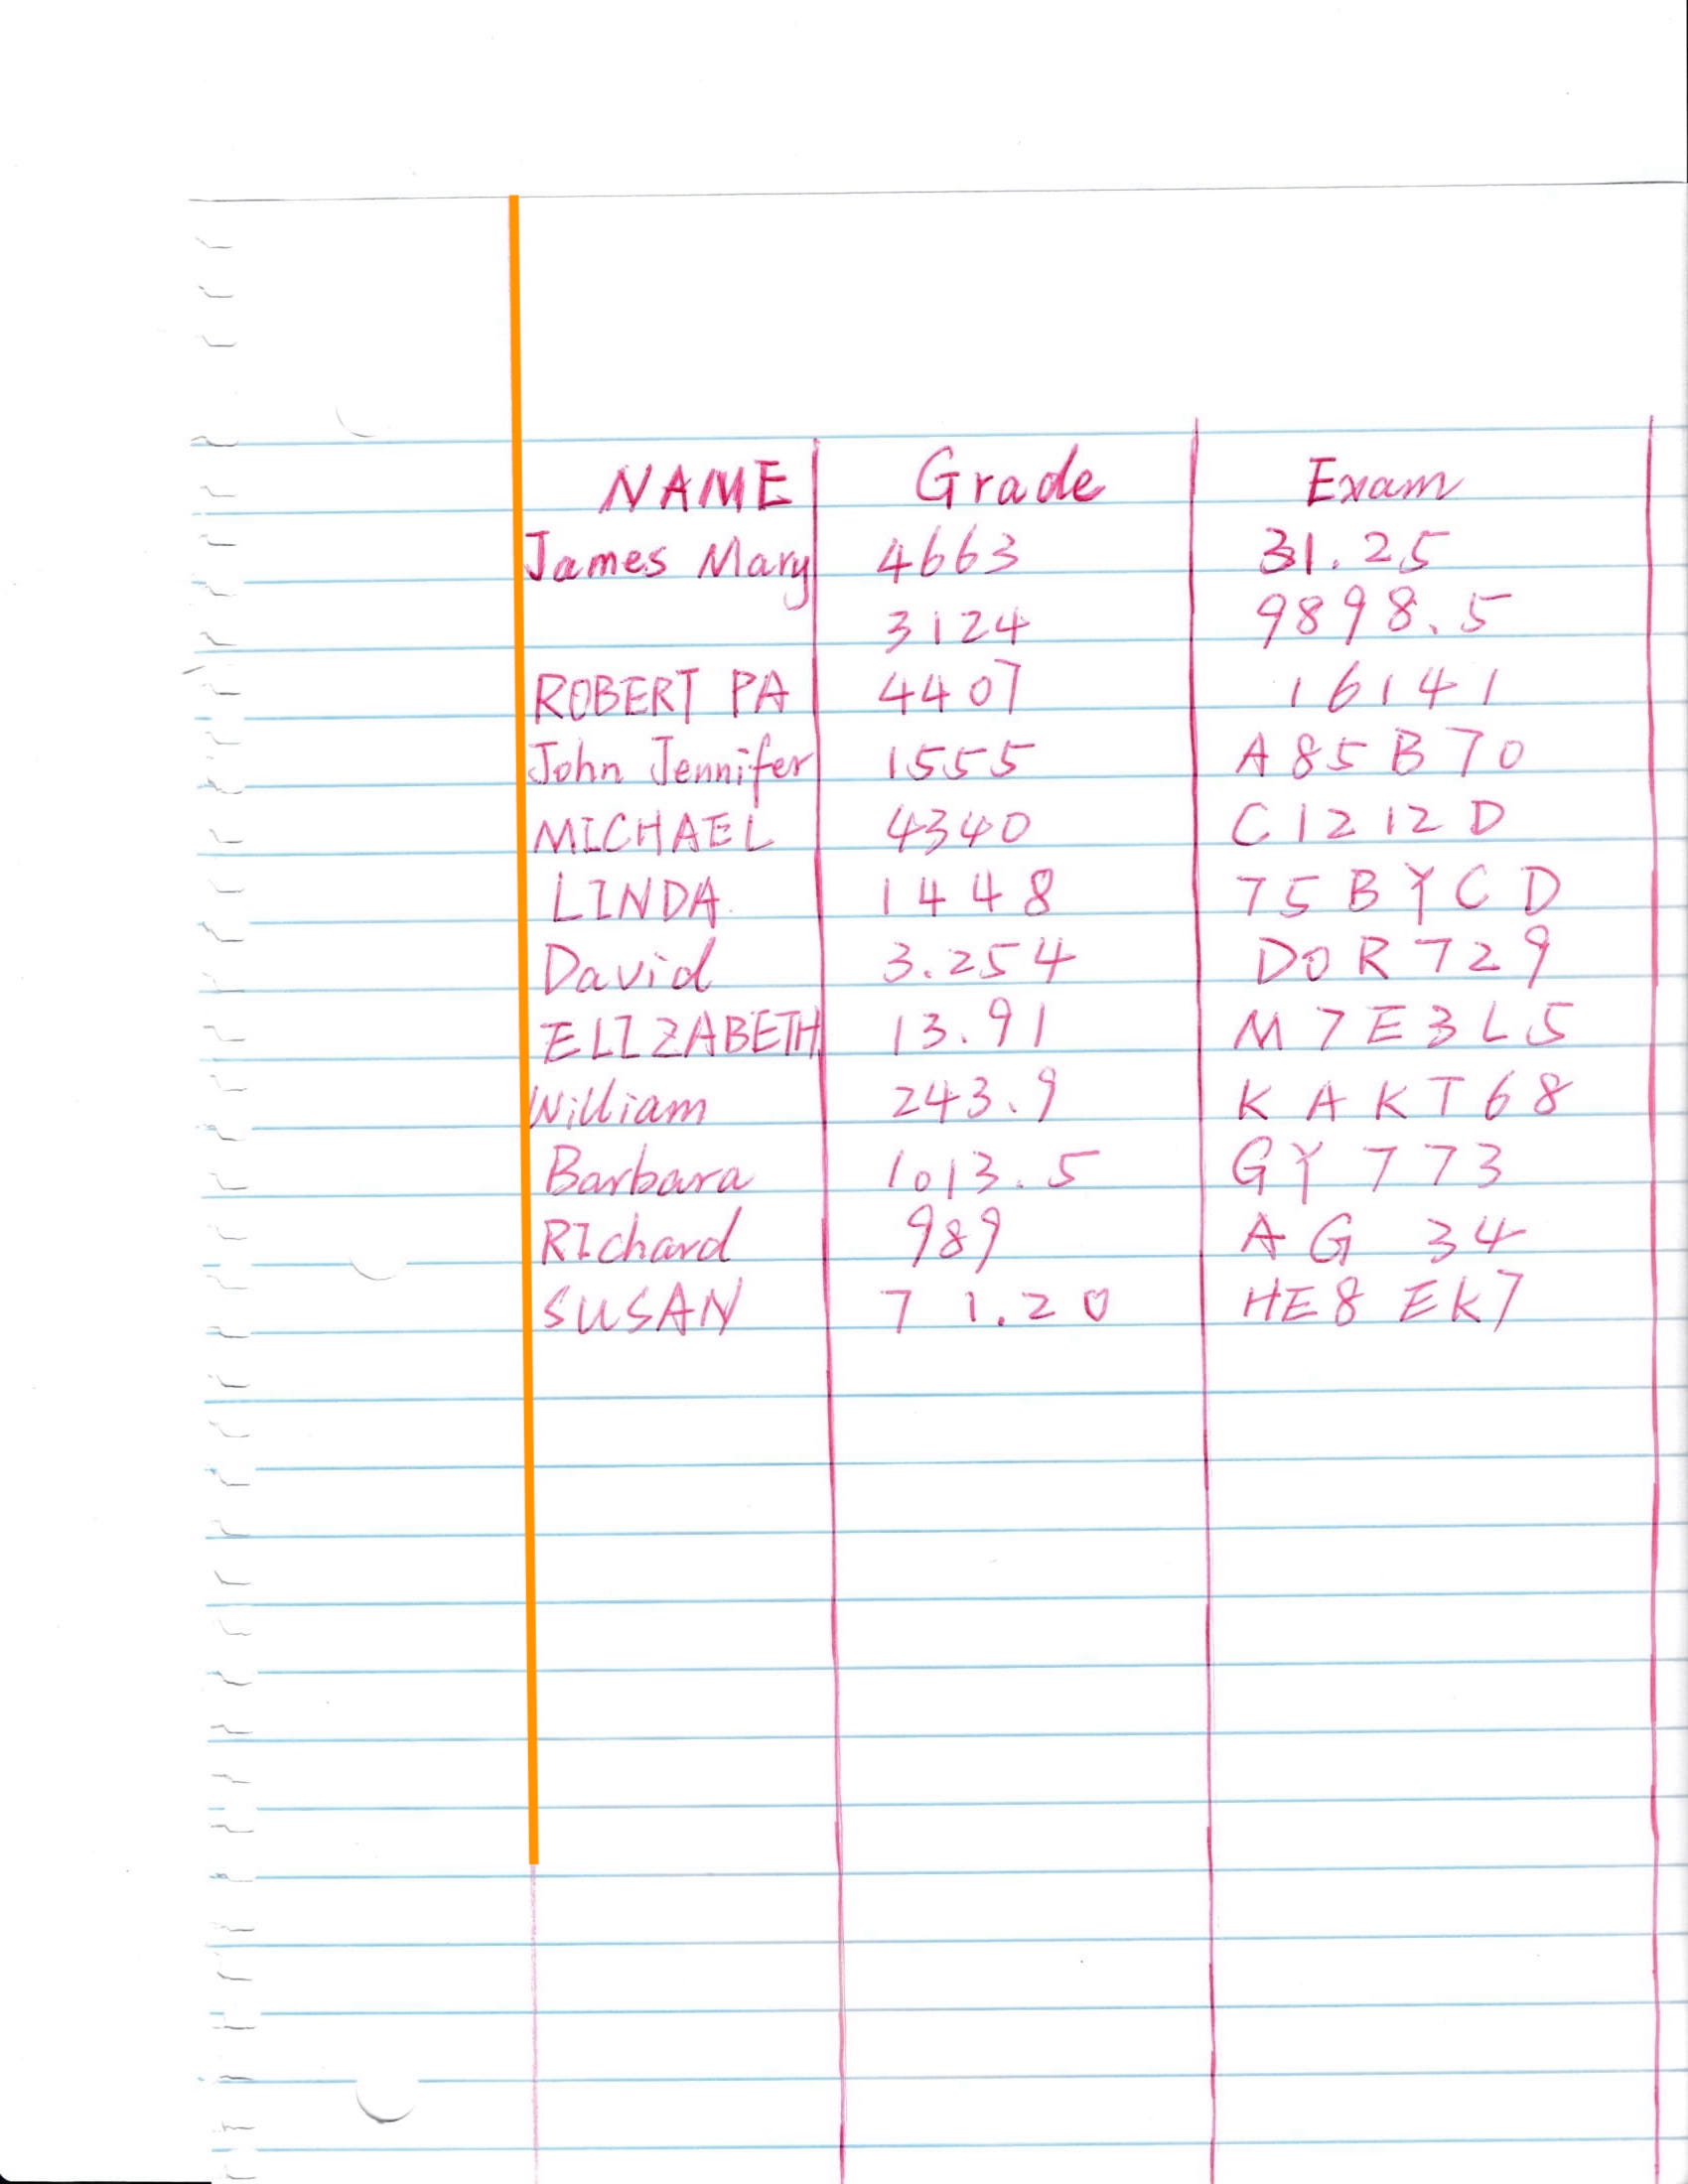 NAME Grade Exam
James Mary 4663 31.25
3124 9898.5
ROBERT PA 4407 16141
John Jennifer 1555 A85B70
MICHAEL 4340 C1212D
LINDA 1448 75BYCD
David 3.254 D0R729
ELIZABETH 13.91 M7E3L5
William 243.9 KAKT68
Barbara 1013.5 GY773
RIchard 989 AG 34
SUSAN 71.20 HE8EK7